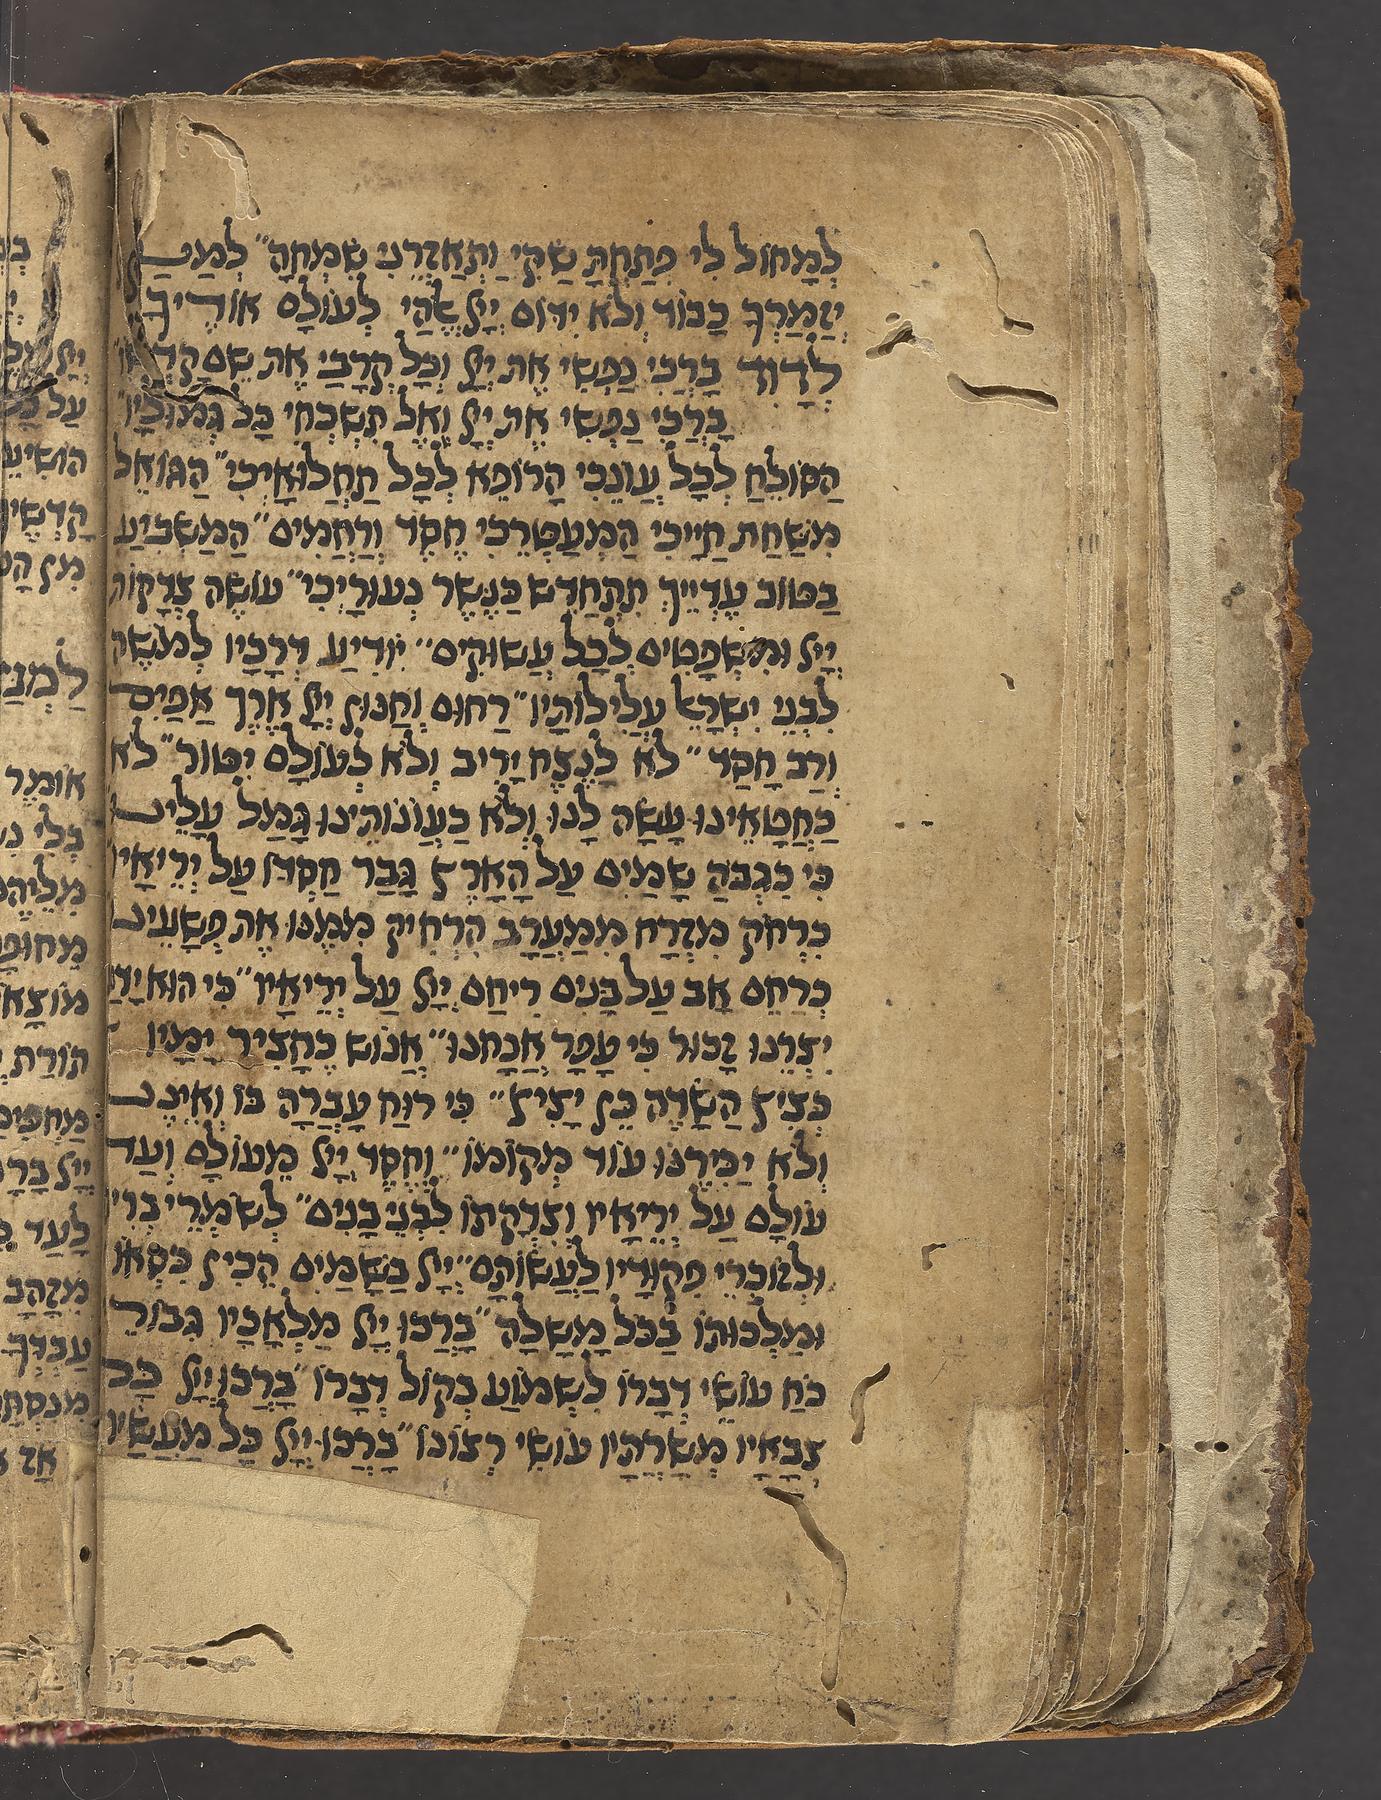 לְמָחוֹל לִי פִתַּחְתָּ שַׂקִּי וַתְּאַזְּרֵנִי שִׂמְחָה״ לְמַעַן
יְזַמֶּרְךָ כָבוֹד וְלֹא יִדּוֹם יְיָ אֱלֹהַי לְעוֹלָם אוֹדֶיךָּ
לְדָוִד בָּרֲכִי נַפְשִׁי אֶת יְיָ וְכָל קְרָבַי אֶת שֵׁם קָדְשׁוֹ״
בָּרֲכִי נַפְשִׁי אֶת יְיָ וְאַל תִּשְׁכְּחִי כָּל גְּמוּלָיו״
הַסּוֹלֵחַ לְכָל עֲוֹנֵכִי הָרוֹפֵא לְכָל תַּחֲלוּאָיְכִי״ הַגּוֹאֵל
מִשַּׁחַת חַיָּיכִי הַמְעַטְּרֵכִי חֶסֶד וְרַחֲמִים״ הַמַּשְׂבִּיעַ
בַּטּוֹב עֶדְיֵיךְ תִּתְחַדֵּשׁ כַּנֶּשֶׁר נְעוּרָיְכִי״ עוֹשֶׂה צְדָקוֹת
יְיָ וּמִשְׁפָּטִים לְכָל עֲשׁוּקִים״ יוֹדִיעַ דְּרָכָיו לְמֹשֶׁה
לִבְנֵי יִשְׂרָאֵל עֲלִילוֹתָיו״ רַחוּם וְחַנּוּן יְיָ אֶרֶךְ אַפַּיִם
וְרַב חָסֶד״ לֹא לָנֶצַח יָרִיב וְלֹא לְעוֹלָם יִטּוֹר״ לֹא
כַחֲטָאֵינוּ עָשָׂה לָנוּ וְלֹא כַעֲוֹנוֹתֵינוּ גָּמַל עָלֵינוּ
כִּי כִגְבֹהַּ שָׁמַיִם עַל הָאָרֶץ גָּבַר חַסְדּוֹ עַל יְרֵיאָיו
כִּרְחֹק מִזְרָח מִמַּעֲרָב הִרְחִיק מִמֶּנּוּ אֶת פְּשָׁעֵינוּ
כְּרַחֵם אָב עַל בָּנִים רִיחַם יְיָ עַל יְרֵיאָיו״ כִּי הוּא יָדַ
יִצְרֵנוּ זָכוּר כִּי עָפָר אֲנָחְנוּ״ אֱנוֹשׁ כֶּחָצִיר יָמָיו
כְּצִיץ הַשָּׂדֶה כֵּן יָצִיץ״ כִּי רוּחַ עָבְרָה בּוֹ וְאֵינֶנּוּ
וְלֹא יַכִּירֶנּוּ עוֹד מְקוֹמוֹ״ וְחֶסֶד יְיָ מֵעוֹלָם וְעַד
עוֹלָם עַל יְרֵיאָיו וְצִדְקָתוֹ לִבְנֵי בָנִים״ לְשֹׁמְרֵי בְרִי
וּלְזוֹכְרֵי פִקּוּדָיו לַעֲשׂוֹתָם״ יְיָ בַּשָּׁמַיִם הֵכִין כִּסְאוֹ
וּמַלְכוּתוֹ בַּכֹּל מָשָׁלָה״ בָּרֲכוּ יְיָ מַלְאָכָיו גִּבּוֹרֵ
כֹחַ עוֹשֵׂי דְבָרוֹ לִשְׁמוֹעַ בְּקוֹל דְּבָרוֹ״ בָּרֲכוּ יְיָ כָּל
צְבָאָיו מְשָׁרְתָיו עוֹשֵׂי רְצוֹנוֹ״ בָּרֲכוּ יְיָ כָּל מַעֲשָׂיו